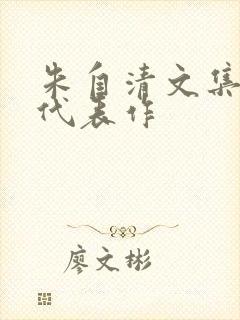 朱自清文集
代表作
廖文彬